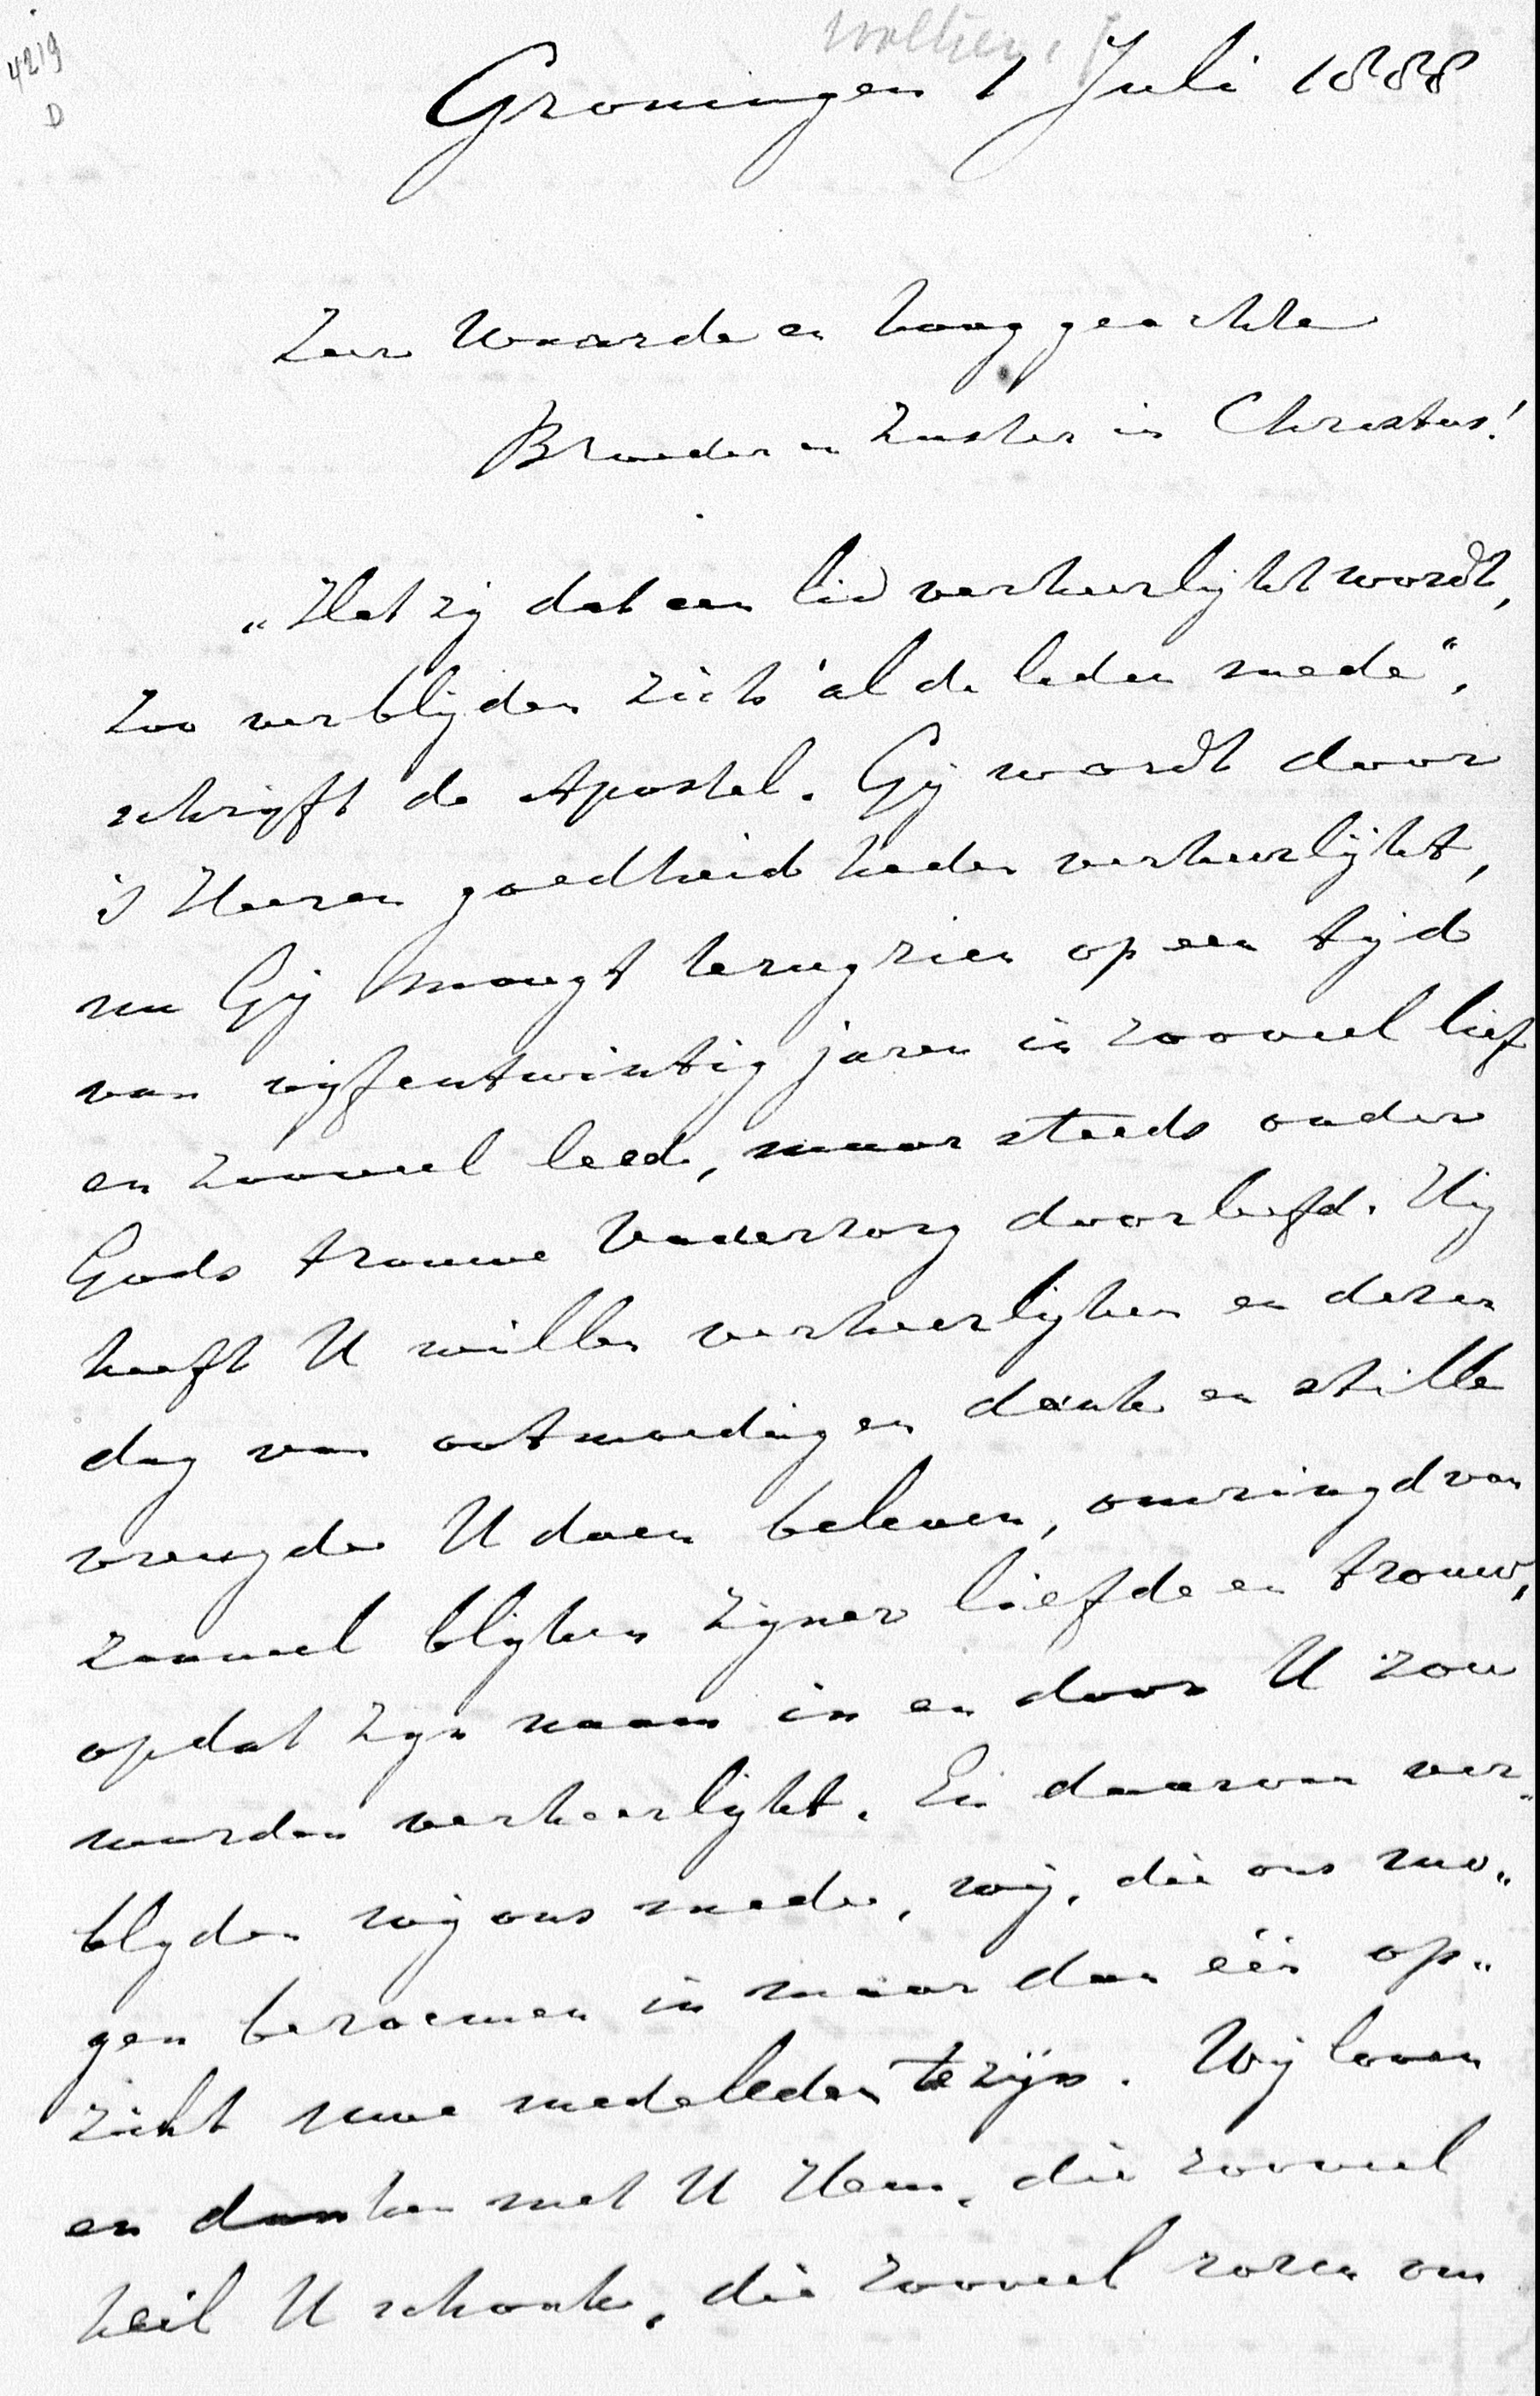 4219
D
Groningen 1 Juli 1888
Zeer Waarde en hooggeachte
Broeder en Zuster in Christus!
„Het zij dat een lid verheerlijkt wordt,
zoo verblijden zich al de leden mede",
schrijft de Apostel. Gij wordt door
's Heeren goedheid heden verheerlijkt,
nu Gij moogt terugzien op een tijd
van vijfentwintig jaren in zooveel lief
en zooveel leed, maar steeds onder
Gods trouwe Vaderzorg doorleefd. Hij
heeft U willen verheerlijken en dezen
dag van ootmoedigen dank en stille
vreugde U doen beleven, omringd van
zooveel blijken zijner liefde en trouw,
opdat zijn naam in en door U zou
worden verheerlijkt. En daarvan ver„
blyden wij ons mede, wij, die ons mo„
gen beroemen in meer dan één op„
zicht uwe medeleden te zijn. Wij loven
en danken met U Hem, die zooveel
heil U schonk, die zooveel rozen om